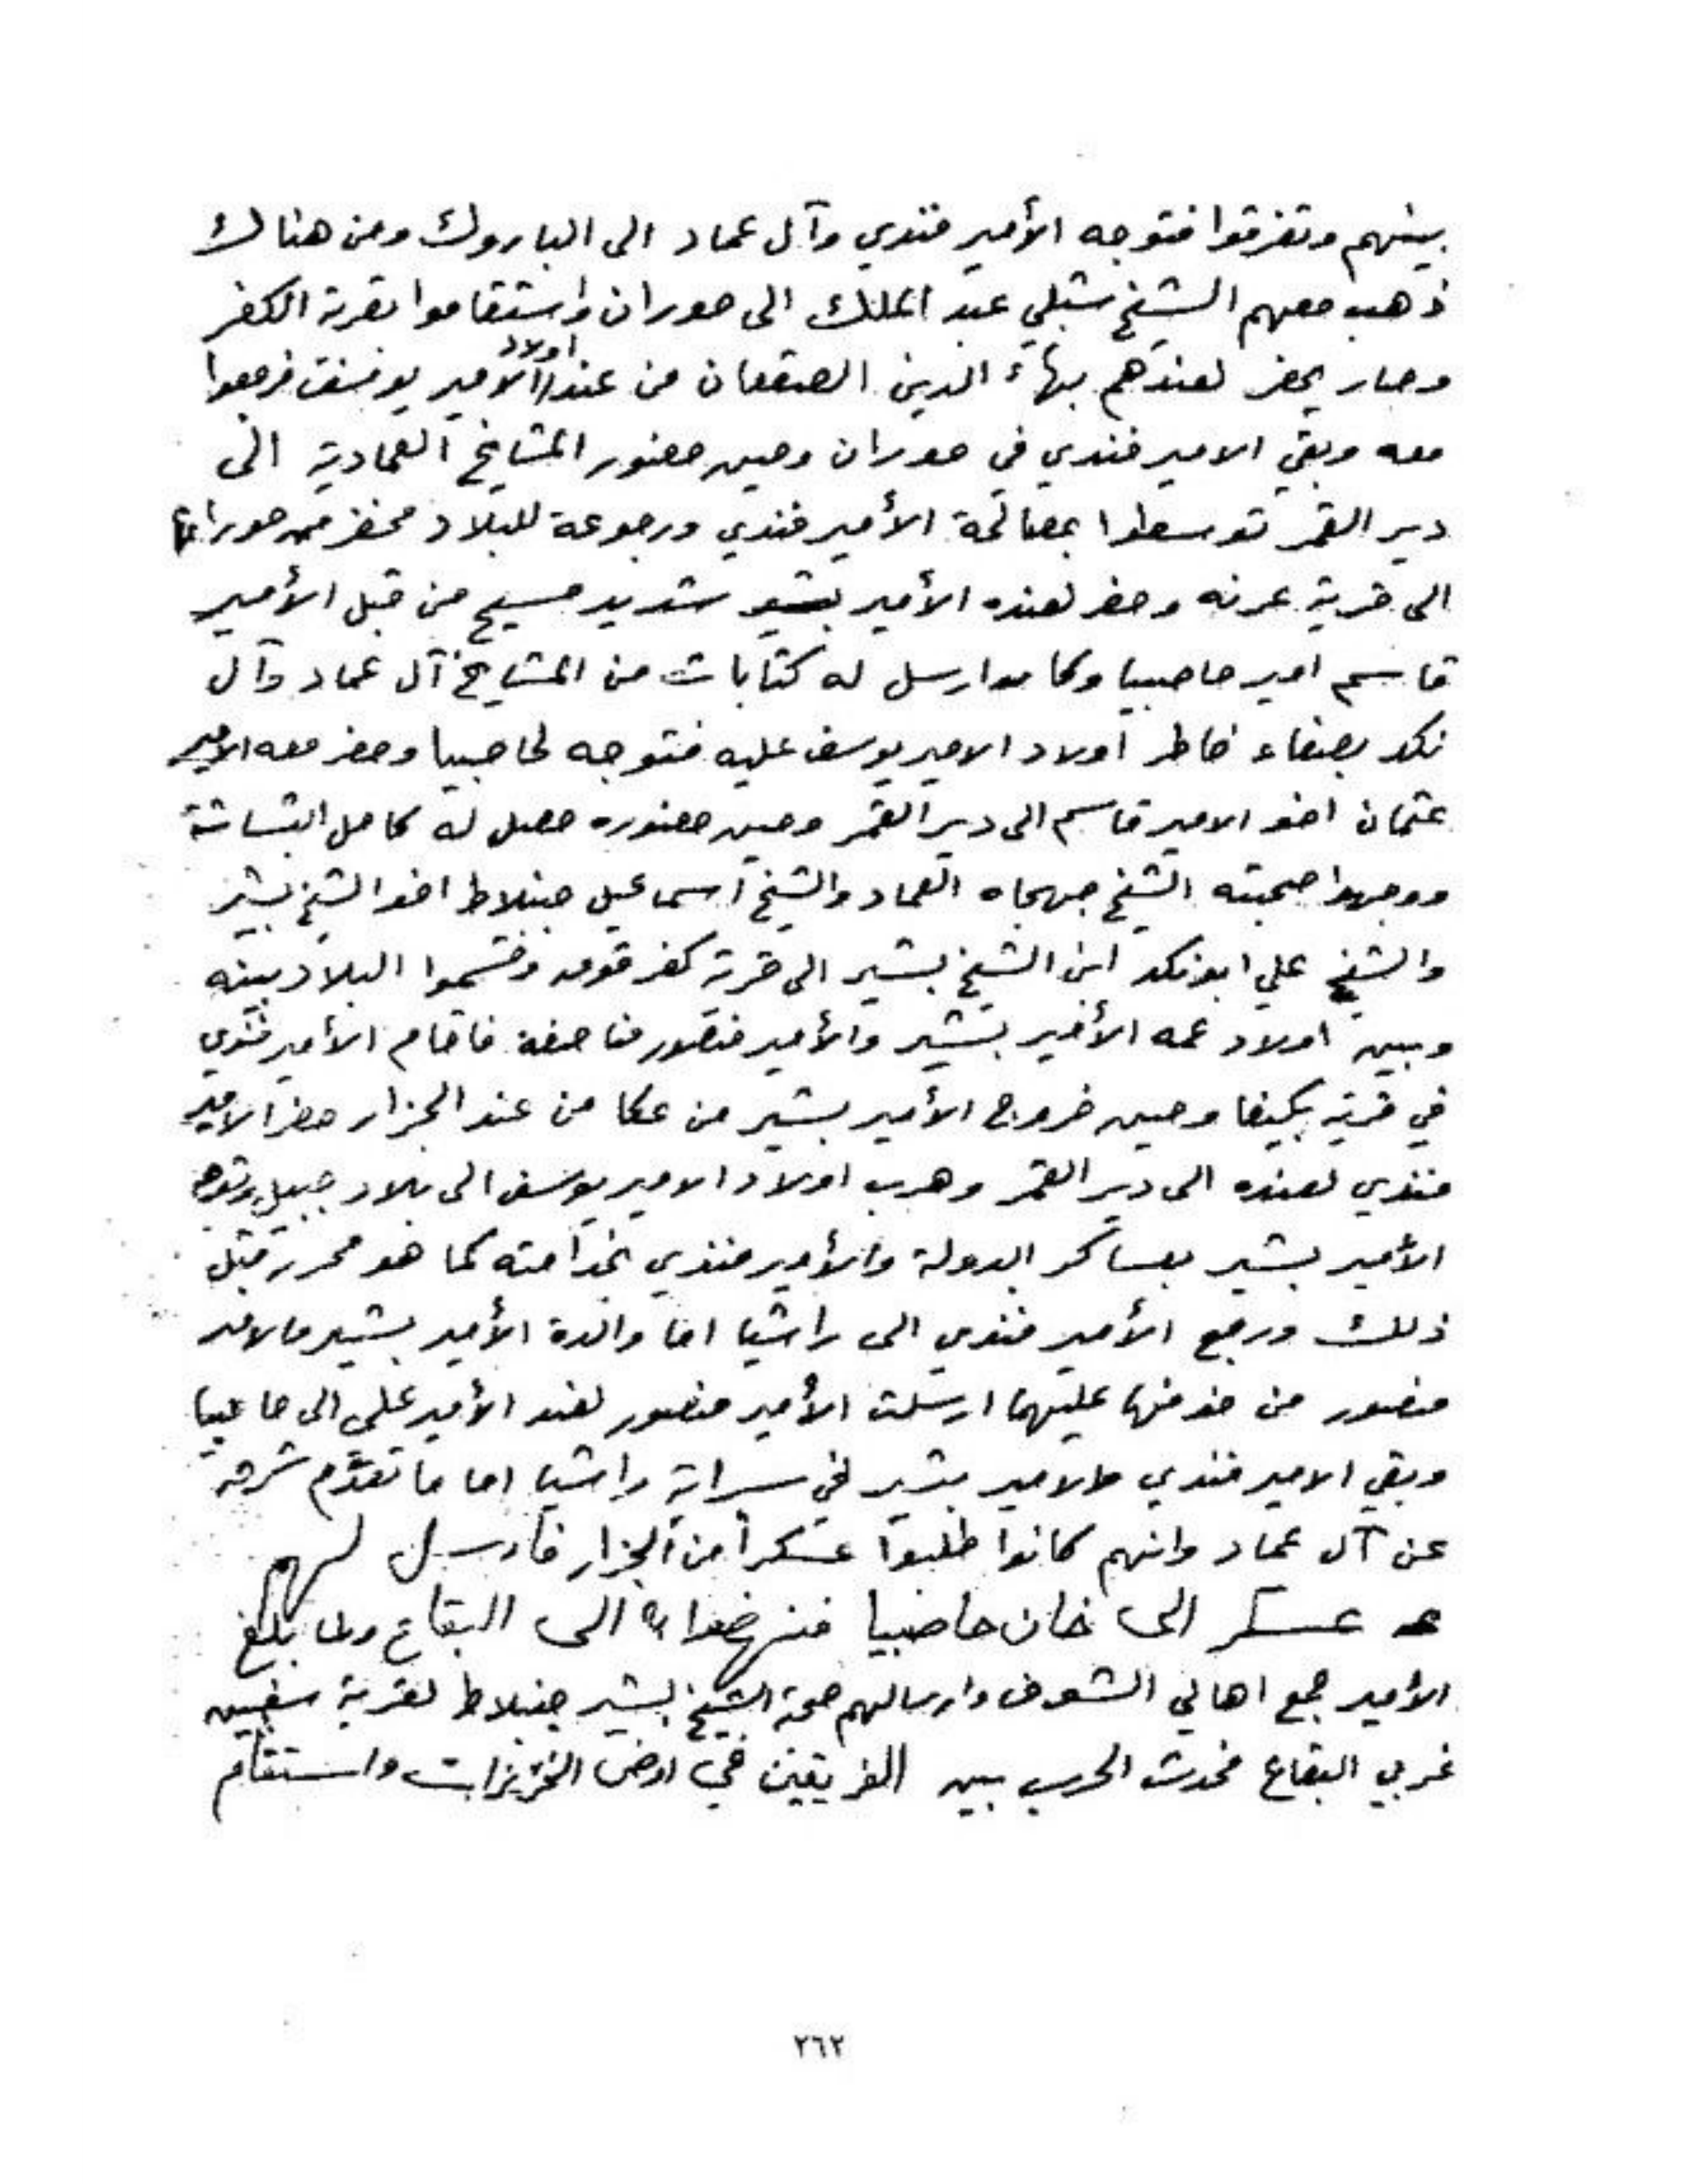 بينهم وتفرقوا فتوجه الأمير فندي وآل عماد الى الباروك ومن هناك
ذهب معهم الشيخ شبلي عبد الملك الى حوران واستقاموا بقرية الكفر
وصار يحضر لعندهم بهاء الدين الصقعان من عند اولاد الامير يوسف فرجعوا
معه وبقي الامير فندي في حوران وحين حضور المشايخ العمادية الى
دير القمر توسطوا بمصالحة الأمير فندي ورجوعه للبلاد فحضر من حوران
الى قرية عرنه وحضر لعنده الأمير شديد مسيح من قبل الأمير
قاسم امير حاصبيا وكامدا رسل له كتابات من المشايخ آل عماد وآل
نكد بصفاء خاطر اولاد الامير يوسف عليه فتوجه لحاصبيا وحضر معه الامير
عثمان اخو الامير قاسم الى دير القمر وحين حضوره حصل له كامل البشاشة
ووجهوا صحبته الشيخ جهجاه العماد والشيخ اسماعيل جنبلاط اخو الشيخ بشير
والشيخ علي ابو نكد ابن الشيخ بشير الى قرية كفر قوق وقسموا البلاد بينه
وبين اولاد عمه الأمير بشير والأمير منصور مناصفة فاقام الأمير فندي
في قرية بكيفا وحين خروج الأمير بشير من عكا من عند الجزار حضر الامير
فندي لعنده الى دير القمر وهرب اولاد الامير يوسف الى بلاد جبيل وتوجه
الأمير بشير بعساكر الدولة والأمير فندي بخدامته كما هو محرر قبل
ذلك ورجع الأمير فندي الى راشيا اما والدة الأمير بشير والامير
منصور من خوفها عليهما ارسلت الأمير منصور لعند الأمير علي الى حاصبيا
وبقي الامير فندي والامير بشير في سراية راشيا اما ما تقدّم شرحه
عن آل عماد وانهم كانوا طلبوا عسكراً من الجزار فأرسل لهم
عسكر الى خان حاصبيا فنهضوا به الى البقاع ولما بلغ
الأمير جمع اهالي الشوف وارسالهم صحبة الشيخ بشير جنبلاط لقرية سغبين
غربي البقاع فحدث الحرب بين الفريقين في ارض الخريزات واستقام
٢٦٢